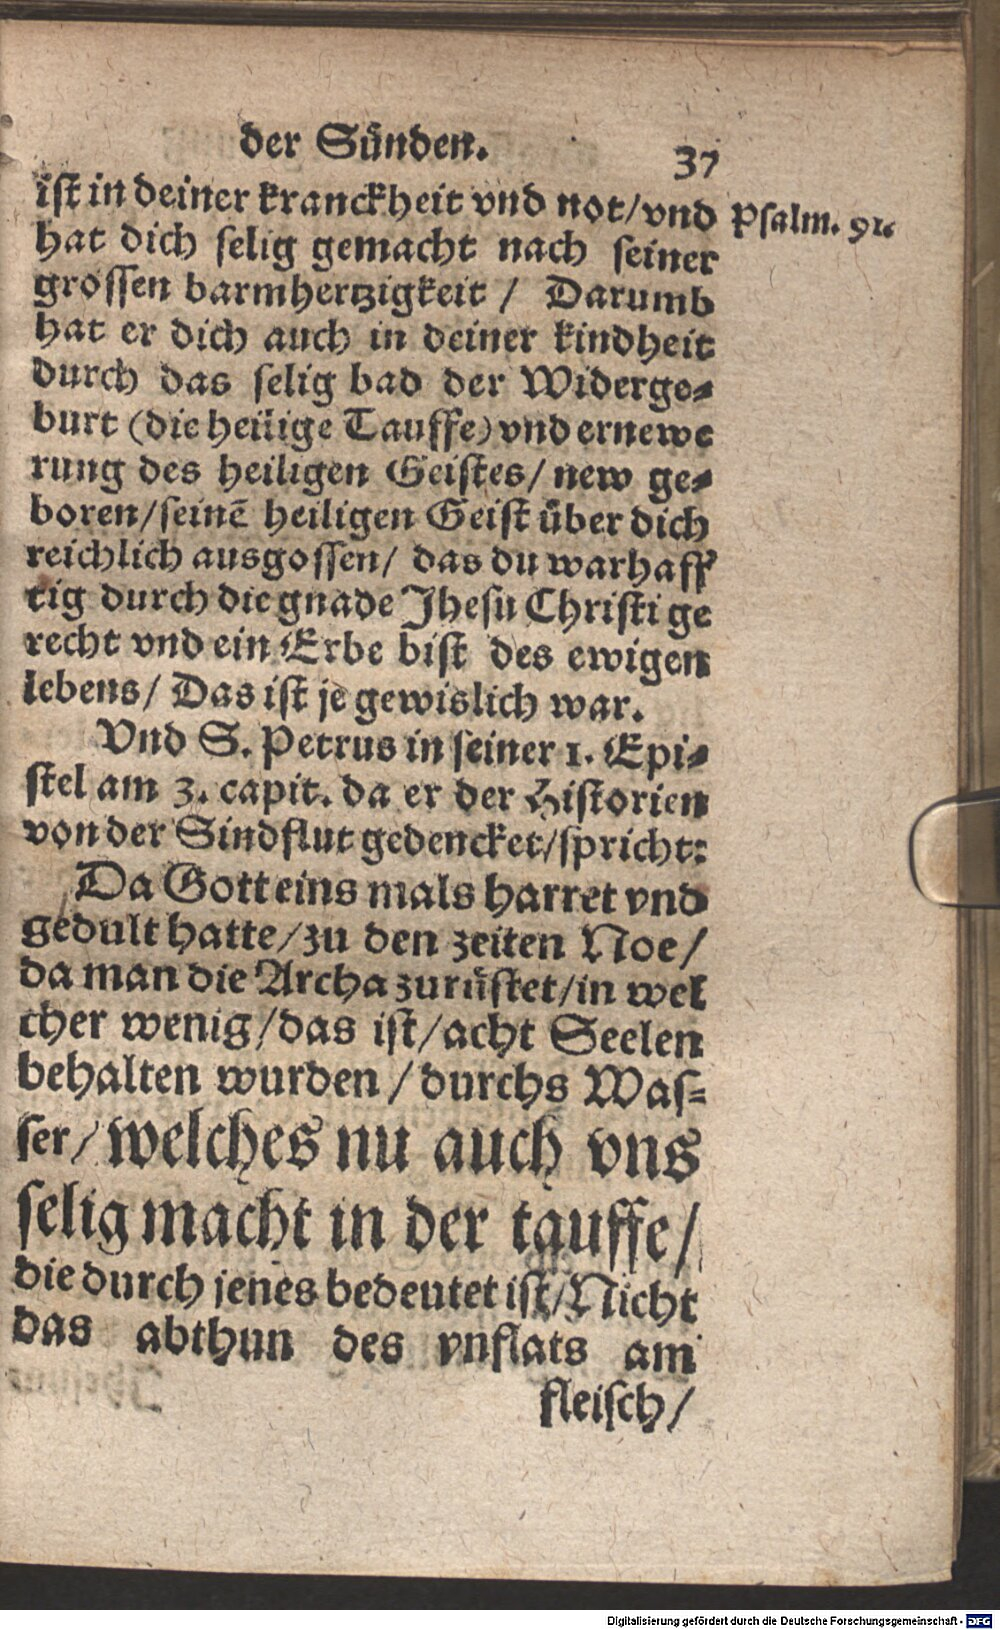 der Sünden. 37
ist in deiner kranckheit vnd not/vnd
Psalm. 91.
hat dich selig gemacht nach seiner
grossen barmhertzigkeit / Darumb
hat er dich auch in deiner kindheit
durch das selig bad der Widerge-
burt (die heilige Tauffe) vnd ernewe
rung des heiligen Geistes/ new ge-
boren/seinē heiligen Geist über dich
reichlich ausgossen/ das du warhaff
tig durch die gnade Jhesu Christi ge
recht vnd ein Erbe bist des ewigen
lebens/ Das ist je gewislich war.
Vnd S. Petrus in seiner 1. Epi-
stel am 3. capit. da er der Historien
von der Sindflut gedencket/spricht:
Da Gott eins mals harret vnd
gedult hatte/zu den zeiten Noe/
da man die Archa zurüstet/in wel
cher wenig/das ist/acht Seelen
behalten wurden/durchs Was-
ser/welches nu auch vns
selig macht in der tauffe/
die durch jenes bedeutet ist/Nicht
das abthun des vnflats am
fleisch/
Digitalisierung gefördert durch die Deutsche Forschungsgemeinschaft - DFG